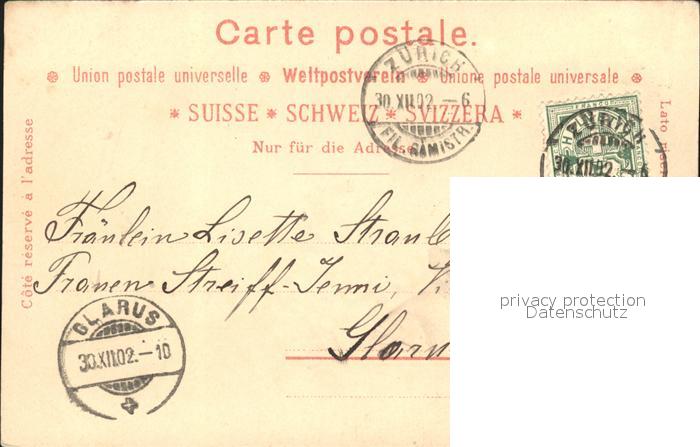 Carte postale.
Union postale universelle ❋ Weltpostverein ❋ Unione postale universale ❋
* SUISSE * SCHWEIZ * SVIZZERA *
Nur für die Adresse
Côté réservé à l'adresse
Lato
ZÜRICH
30.XII.02.–6
FIL. RÄMISTR.
ZÜRICH
30.XII.02.
FRANCO
Fräulein Lisette
Frauen Streiff-Jenni,
Glaru
GLARUS
30.XII.02.–10
privacy protection
Datenschutz